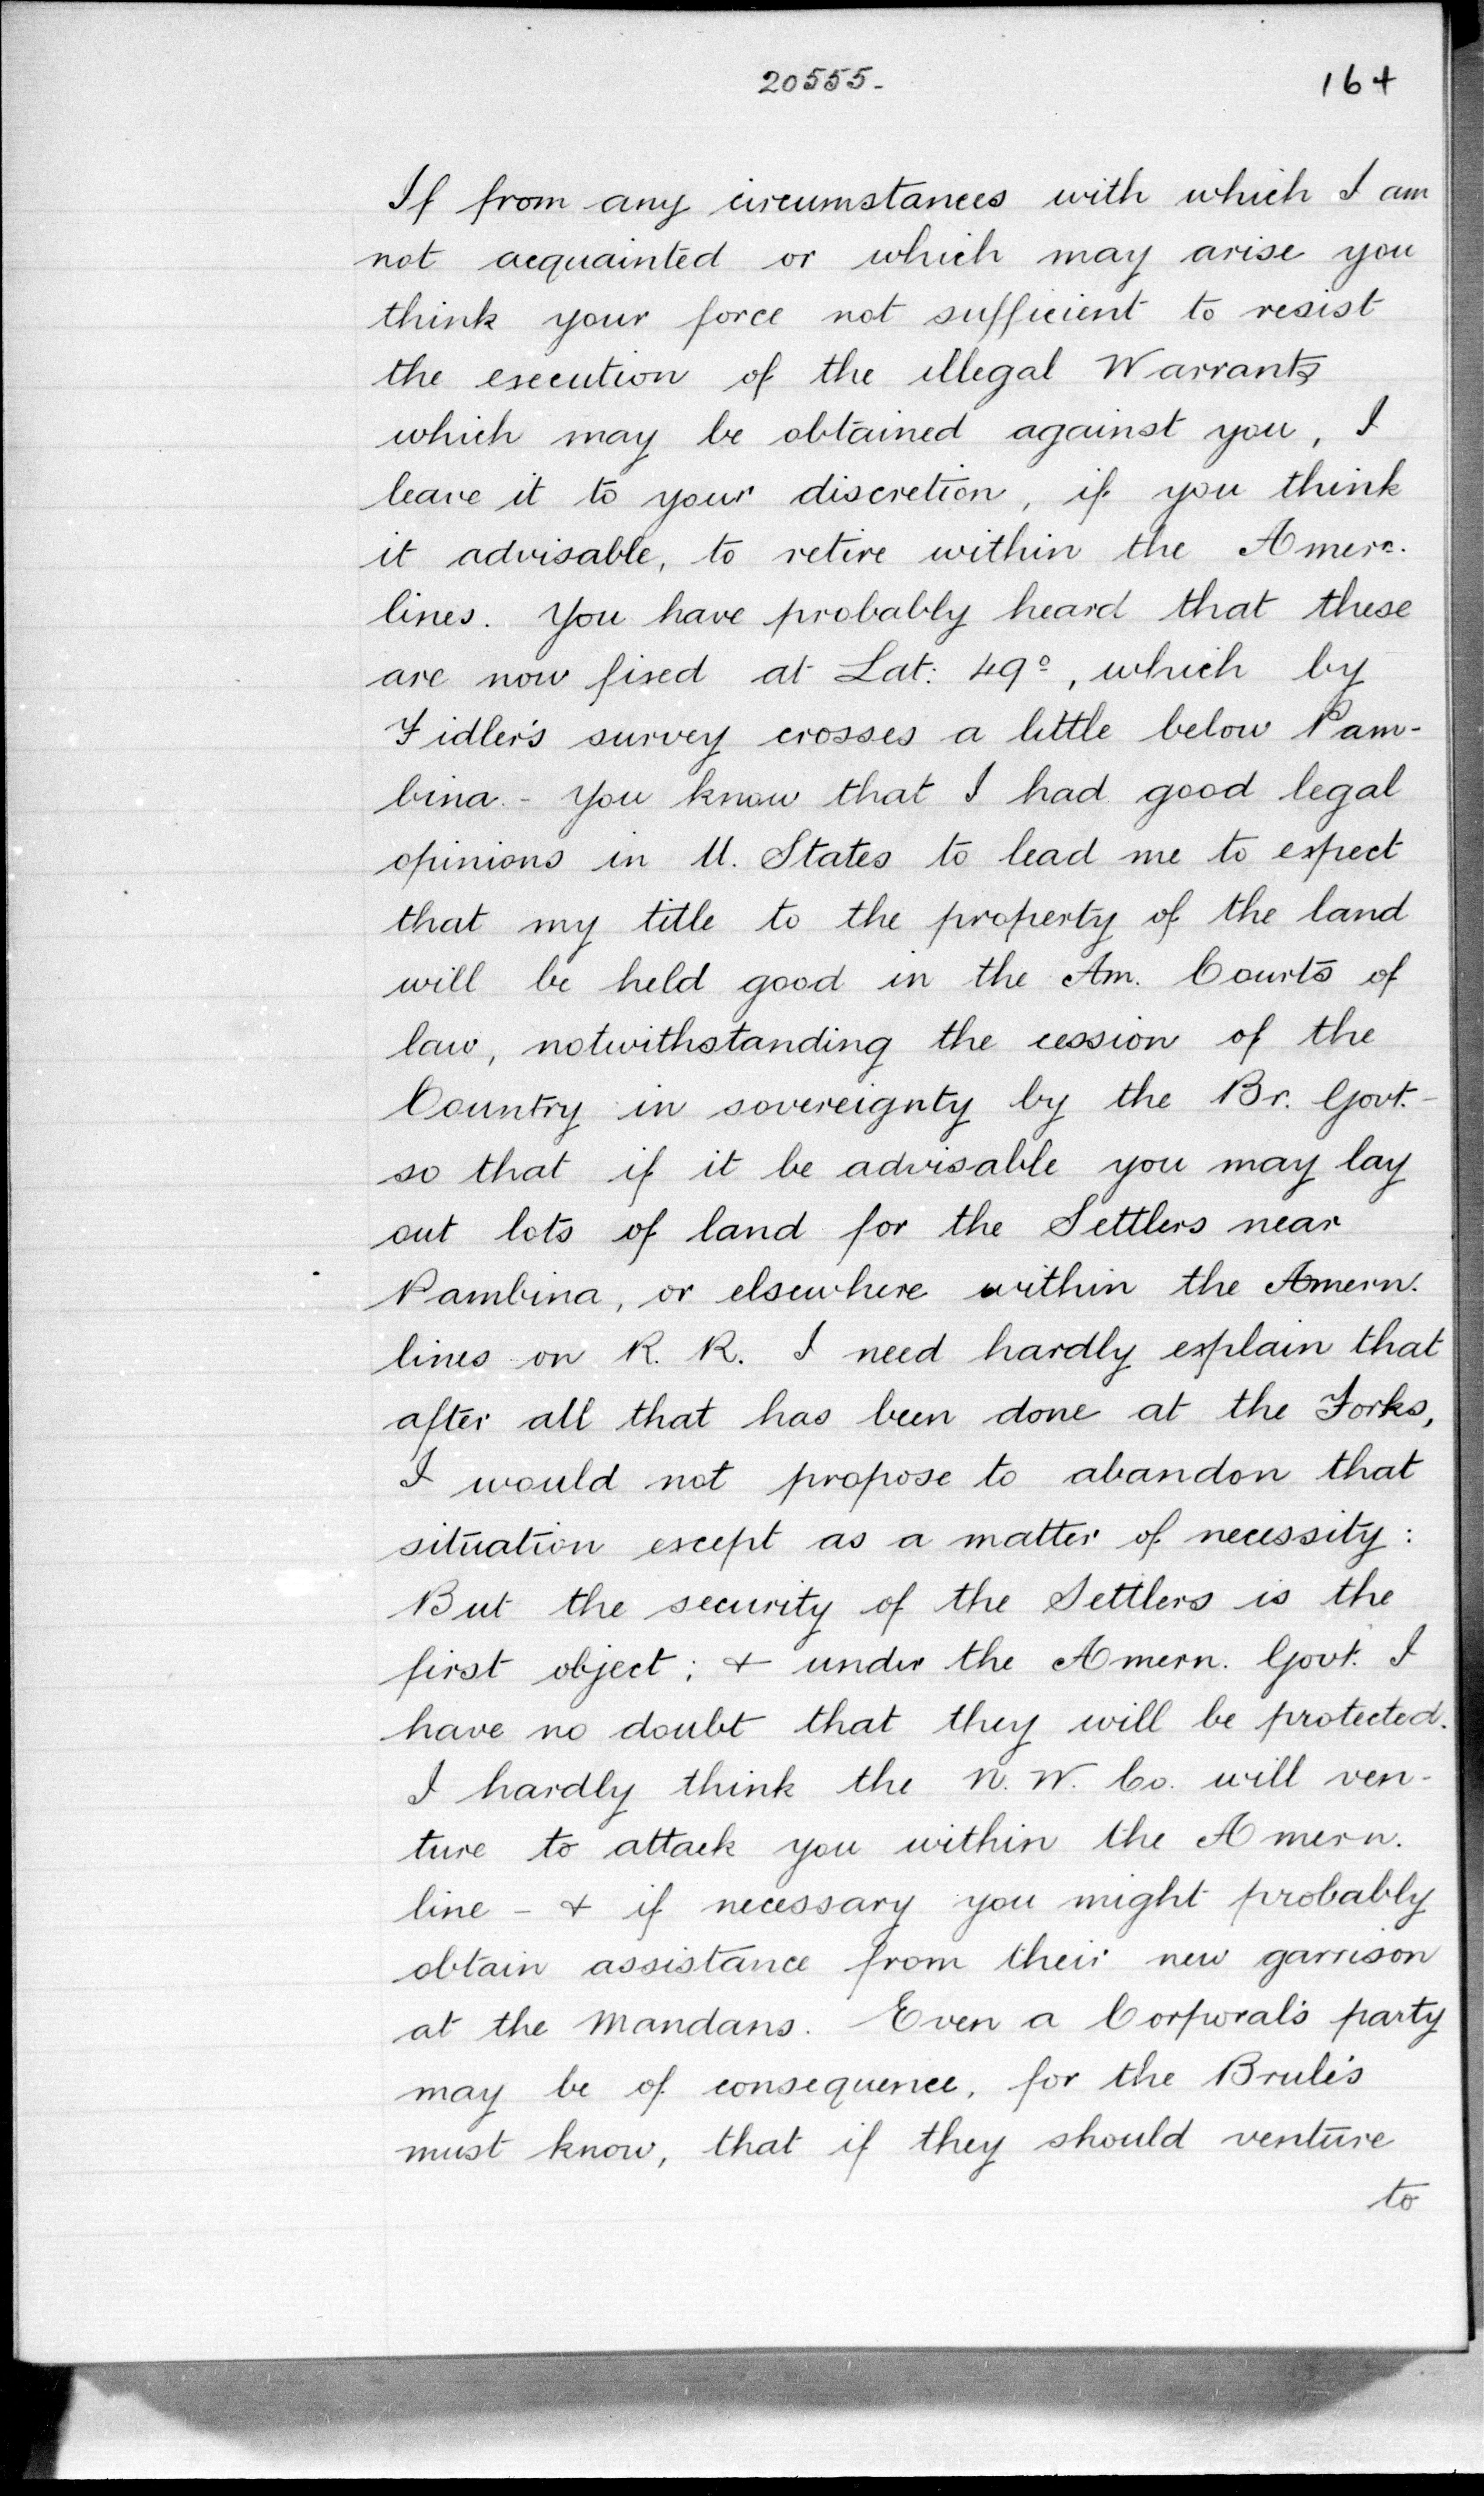 20555-
164
If from any circumstances with which I am
not acquainted or which may arise you
think your force not sufficient to resist
the execution of the illegal Warrants
which may be obtained against you, I
leave it to your discretion, if you think
it advisable, to retire within the Amern.
lines. You have probably heard that these
are now fixed at Lat: 49º, which by
Fidler's survey crosses a little below Pam-
bina. - You know that I had good legal
opinions in U. States to lead me to expect
that my title to the property of the land
will be held good in the Am. Courts of
law, notwithstanding the cession of the
Country in sovereignty by the Br. Govt. -
so that if it be advisable you may lay
out lots of land for the Settlers near
Pambina, or elsewhere within the Amern.
lines on R. R. I need hardly explain that
after all that has been done at the Forks,
I would not propose to abandon that
situation except as a matter of necessity:
But the security of the Settlers is the
first object; & under the Amern. Govt. I
have no doubt that they will be protected.
I hardly think the N. W. Co. will ven-
ture to attack you within the Amern.
line - & if necessary you might probably
obtain assistance from their new garrison
at the Mandans. Even a Corporal's party
may be of consequence, for the Brulés
must know, that if they should venture
to